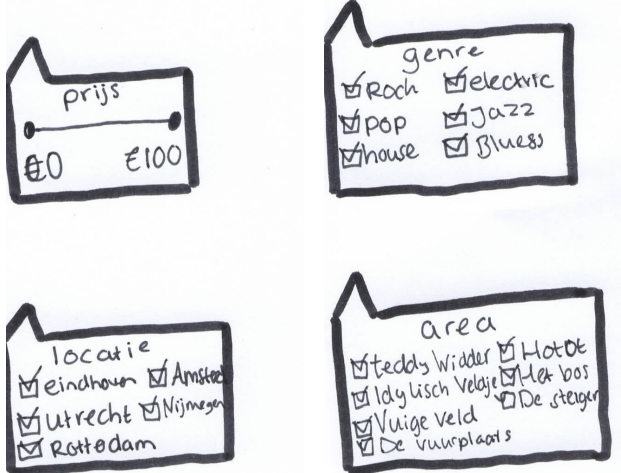 prijs
€0 €100
genre
Roch electric
pop Jazz
house Bluess
locatie
eindhoven Amsted
utrecht Nijmegen
Rottedam
area
teddy Widder Hotot
Idylisch veldje Het bos
Vuige veld De steiger
De vuurplaats